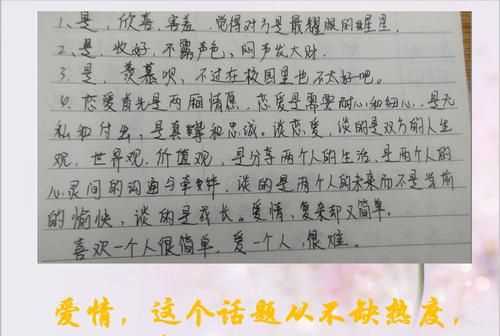 1、是，欣喜，害羞，觉得对方是最耀眼的星星.
2、是，收好，不露声色、闷声发大财.
3、是，羡慕呗，不过在校园里也不太好吧。
4、恋爱首先是两厢情愿，恋爱是需要耐心和细心、是无
私和付出，是真挚和忠诚。谈恋爱，谈的是双方的人生
观、世界观、价值观，是分享两个人的生活、是两个人的
心灵间的沟通与牵绊，谈的是两个人的未来而不是当前
的愉快，谈的是成长。爱情，复杂却又简单，
喜欢一个人很简单，爱一个人，很难。
爱情，这个话题从不缺热度，